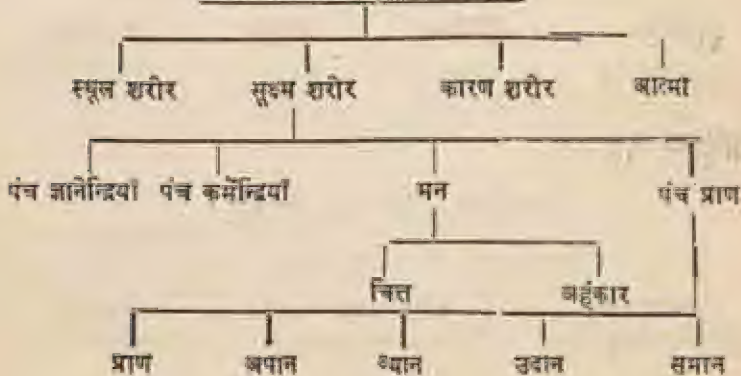 स्थूल शरीर सूक्ष्म शरीर कारण शरीर आत्मा
पंच ज्ञानेन्द्रियाँ पंच कर्मेन्द्रियाँ मन पंच प्राण
चित्त अहंकार
प्राण अपान व्यान उदान समान